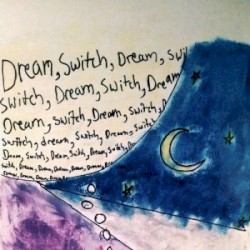 Dream, Switch, Dream, Swit
Switch, Dream, Switch, Dream
Dream, Switch, Dream, Switch,
Switch, dream, Switch, Dream,
Dream, Switch, Dream, Switch, Dream,
Switch, Dream, Switch, Dream, Switch,